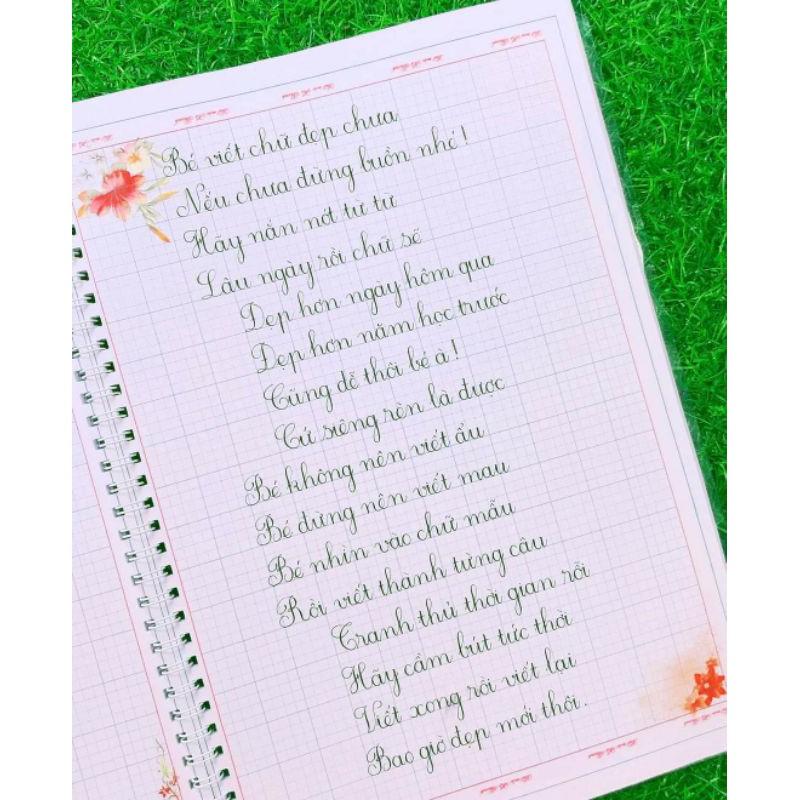 Bé viết chữ đẹp chưa
Nếu chưa đừng buồn nhé!
Hãy nắn nót từ từ
Lâu ngày rồi chữ sẽ
Đẹp hơn ngày hôm qua
Đẹp hơn năm học trước
Cũng dễ thôi bé à!
Cứ siêng rèn là được
Bé không nên viết ẩu
Bé đừng nên viết mau
Bé nhìn vào chữ mẫu
Rồi viết thành từng câu
Tranh thủ thời gian rồi
Hãy cầm bút tức thời
Viết xong rồi viết lại
Bao giờ đẹp mới thôi.